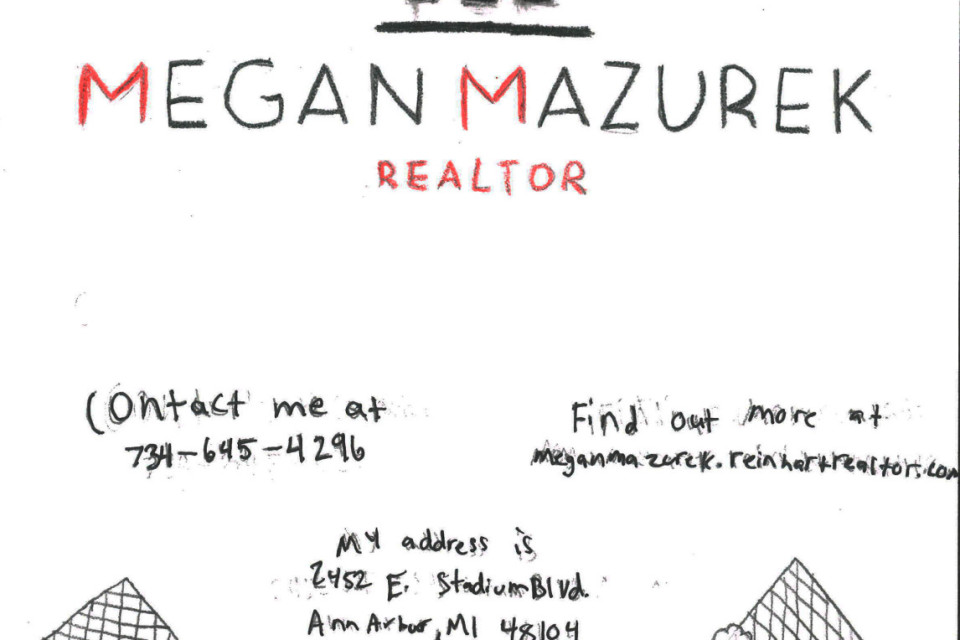 MEGAN MAZUREK
REALTOR
Contact me at
734-645-4296
Find out more at
meganmazurek.reinhartrealtors.com
My address is
2452 E. Stadium Blvd.
Ann Arbor, MI 48104